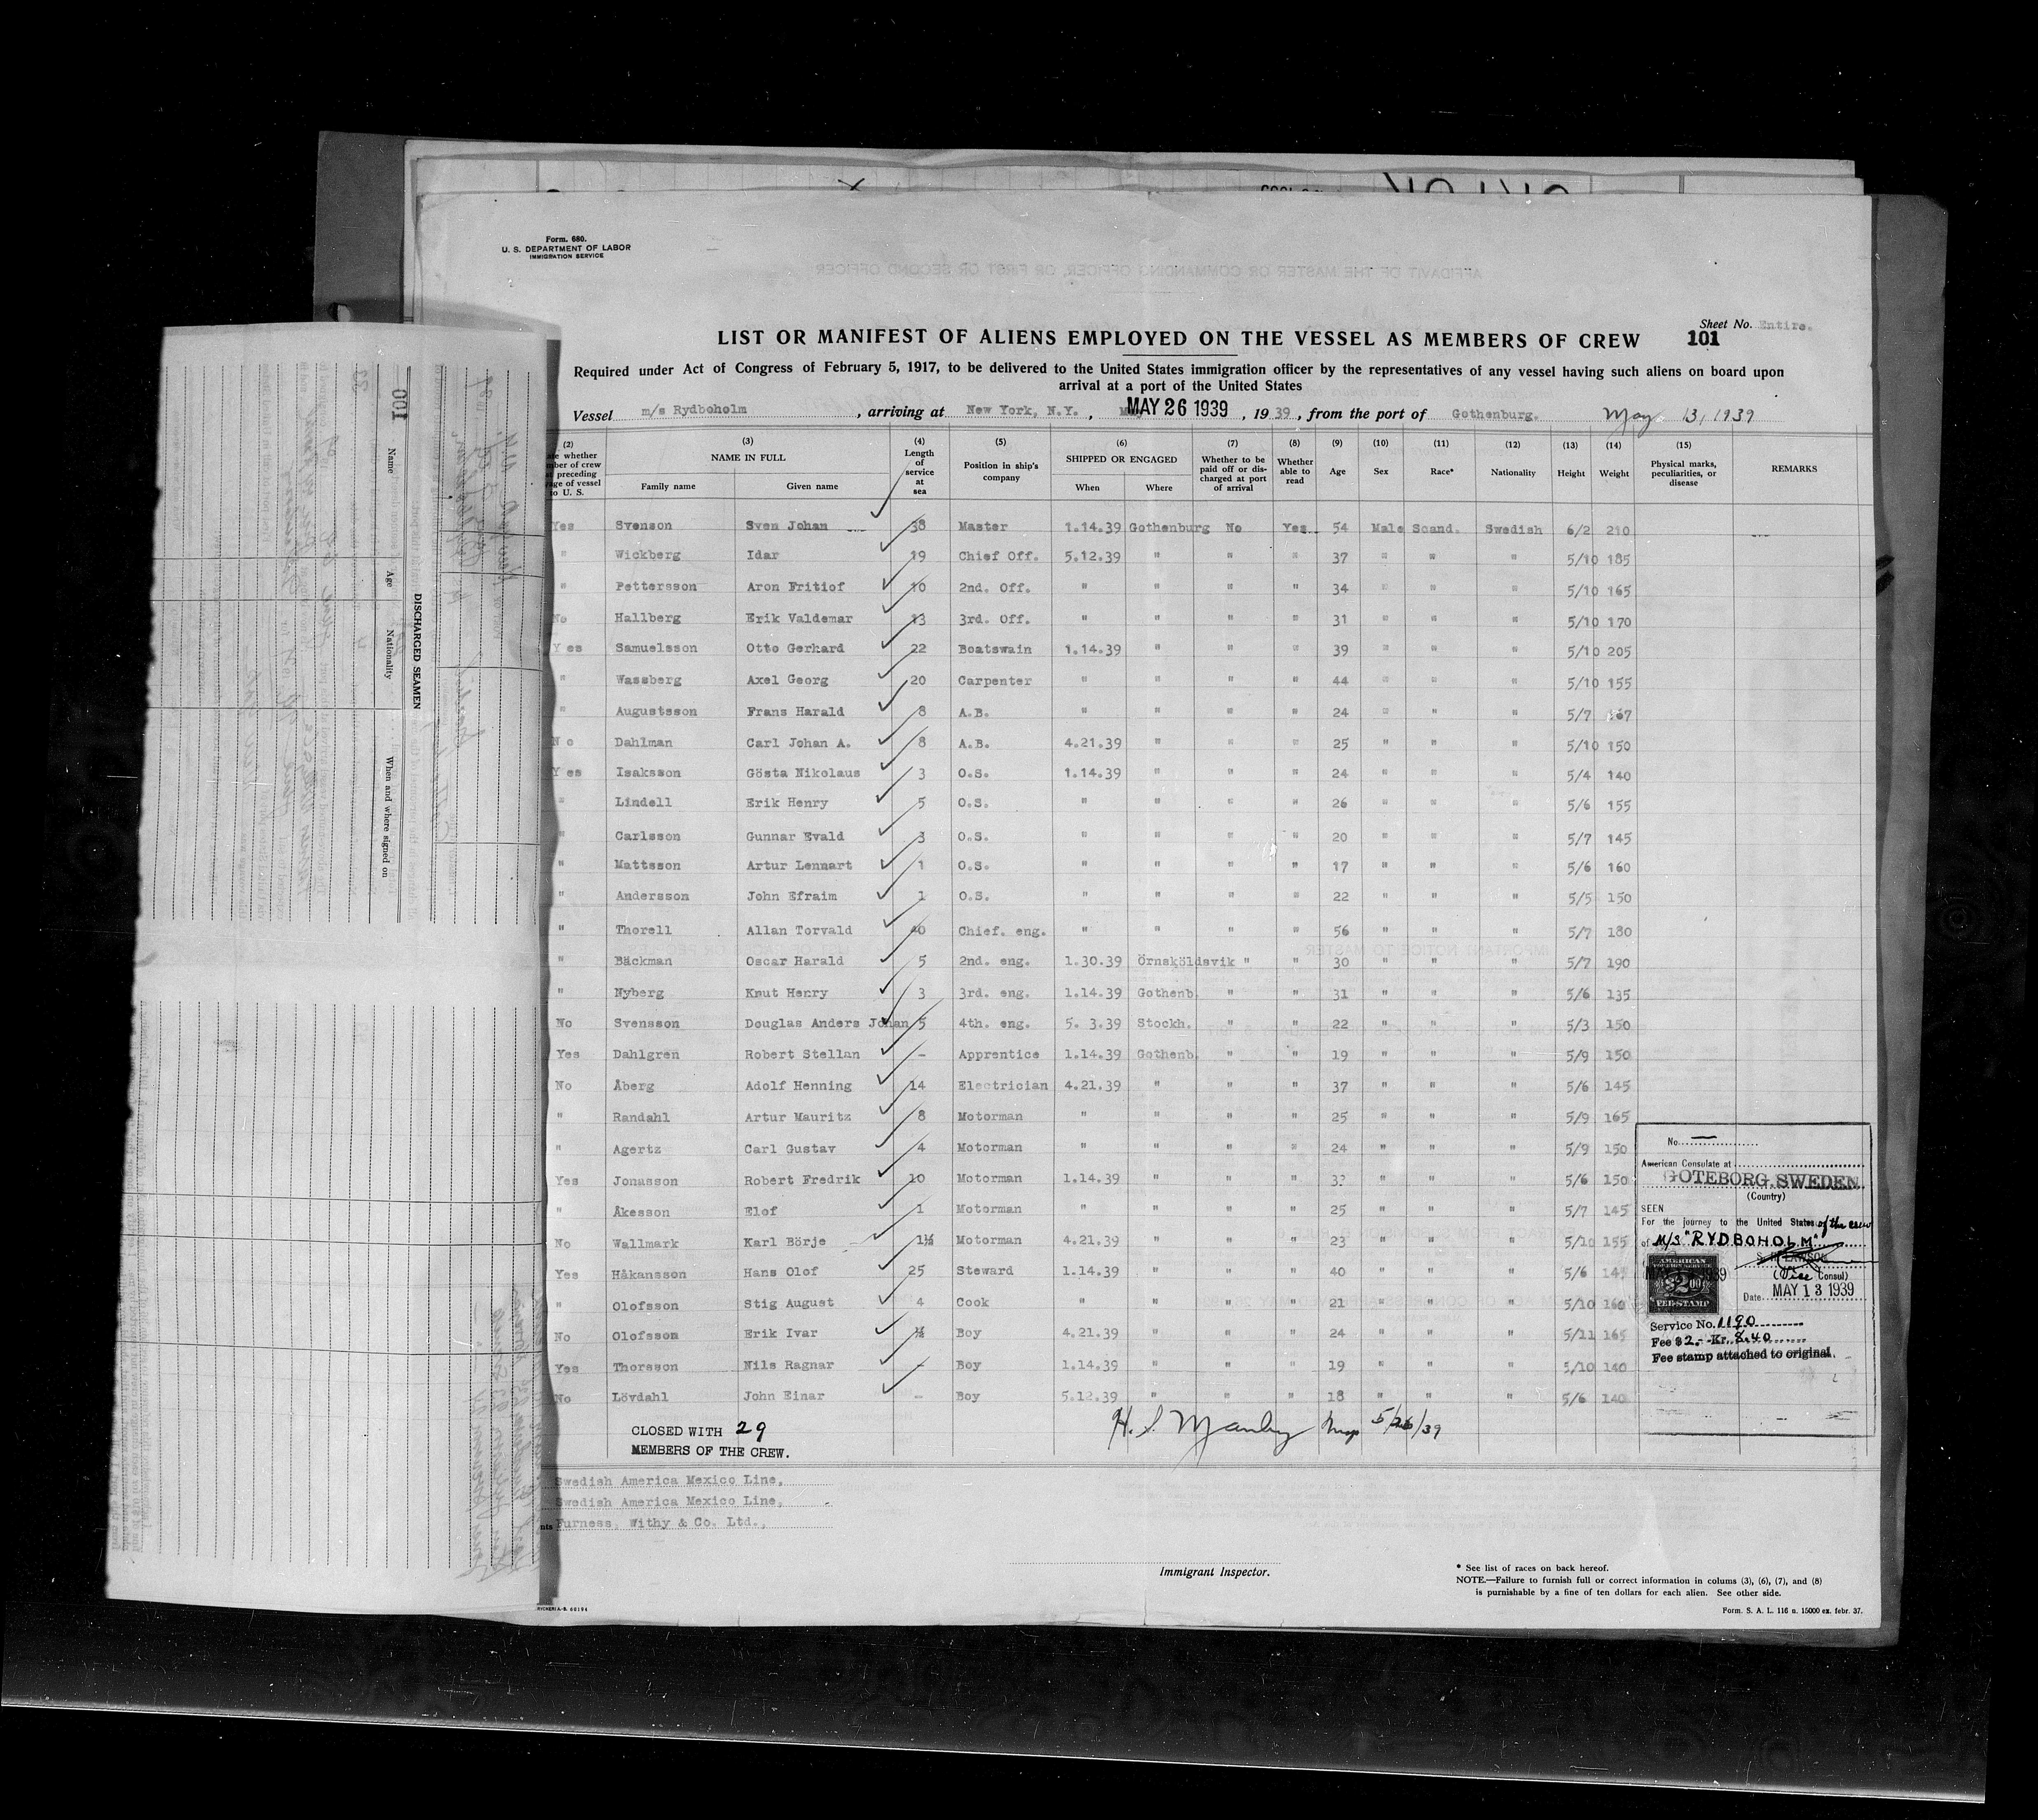 Form. 680.
U. S. DEPARTMENT OF LABOR
IMMIGRATION SERVICE
Sheet No. Entire.
LIST OR MANIFEST OF ALIENS EMPLOYED ON THE VESSEL AS MEMBERS OF CREW 101
Required under Act of Congress of February 5, 1917, to be delivered to the United States immigration officer by the representatives of any vessel having such aliens on board upon
arrival at a port of the United States
Vessel m/s Rydboholm , arriving at New York, N.Y. , MAY 26 1939 , 19 39 , from the port of Gothenburg. May 13, 1939
(2) (3) (4) (5) (6) (7) (8) (9) (10) (11) (12) (13) (14) (15)
NAME IN FULL Length of service at sea Position in ship's company SHIPPED OR ENGAGED Whether to be paid off or discharged at port of arrival Whether able to read Age Sex Race* Nationality Height Weight Physical marks, peculiarities, or disease REMARKS
Family name Given name When Where
Yes Svenson Sven Johan 38 Master 1.14.39 Gothenburg No Yes 54 Male Scand. Swedish 6/2 210
" Wickberg Idar 19 Chief Off. 5.12.39 " " " 37 " " " 5/10 185
" Pettersson Aron Fritiof 10 2nd. Off. " " " " 34 " " " 5/10 165
No Hallberg Erik Valdemar 13 3rd. Off. " " " " 31 " " " 5/10 170
Yes Samuelsson Otto Gerhard 22 Boatswain 1.14.39 " " " 39 " " " 5/10 205
" Wassberg Axel Georg 20 Carpenter " " " " 44 " " " 5/10 155
" Augustsson Frans Harald 8 A.B. " " " " 24 " " " 5/7 167
No Dahlman Carl Johan A. 8 A.B. 4.21.39 " " " 25 " " " 5/10 150
Yes Isaksson Gösta Nikolaus 3 O.S. 1.14.39 " " " 24 " " " 5/4 140
" Lindell Erik Henry 5 O.S. " " " " 26 " " " 5/6 155
" Carlsson Gunnar Evald 3 O.S. " " " " 20 " " " 5/7 145
" Mattsson Artur Lennart 1 O.S. " " " " 17 " " " 5/6 160
" Andersson John Efraim 1 O.S. " " " " 22 " " " 5/5 150
" Thorell Allan Torvald 40 Chief. eng. " " " " 56 " " " 5/7 180
" Bäckman Oscar Harald 5 2nd. eng. 1.30.39 Örnsköldsvik " " 30 " " " 5/7 190
" Nyberg Knut Henry 3 3rd. eng. 1.14.39 Gothenb. " " 31 " " " 5/6 135
No Svensson Douglas Anders Johan 5 4th. eng. 5. 3.39 Stockh. " " 22 " " " 5/3 150
Yes Dahlgren Robert Stellan - Apprentice 1.14.39 Gothenb. " " 19 " " " 5/9 150
No Åberg Adolf Henning 14 Electrician 4.21.39 " " " 37 " " " 5/6 145
" Randahl Artur Mauritz 8 Motorman " " " " 25 " " " 5/9 165
" Agertz Carl Gustav 4 Motorman " " " " 24 " " " 5/9 150
Yes Jonasson Robert Fredrik 10 Motorman 1.14.39 " " " " " " 5/6 150
" Åkesson Elof 1 Motorman " " " " 25 " " " 5/7 145
No Wallmark Karl Börje 1½ Motorman 4.21.39 " " " 23 " " " 5/10 155
Yes Håkansson Hans Olof 25 Steward 1.14.39 " " " 40 " " " 5/6 145
" Olofsson Stig August 4 Cook " " " " 21 " " " 5/10 160
No Olofsson Erik Ivar ½ Boy 4.21.39 " " " 24 " " " 5/11 165
Yes Thorsson Nils Ragnar - Boy 1.14.39 " " " 19 " " " 5/10 140
No Lövdahl John Einar - Boy 5.12.39 " " " 18 " " " 5/6 140
CLOSED WITH 29
MEMBERS OF THE CREW.
H. S. Manley Insp 5/26/39
Swedish America Mexico Line,
Swedish America Mexico Line,
Furness, Withy & Co. Ltd.,
Immigrant Inspector.
* See list of races on back hereof.
NOTE.—Failure to furnish full or correct information in colums (3), (6), (7), and (8)
is punishable by a fine of ten dollars for each alien. See other side.
Form. S. A. L. 116 n. 15000 ex. febr. 37.
No.
American Consulate at
GOTEBORG, SWEDEN.
(Country)
SEEN
For the journey to the United States of the crew
of M/S "RYDBOHOLM"
(Vice Consul)
Date MAY 13 1939
AMERICAN
FEE STAMP
Service No. 1190
Fee $ 2.- Kr. 8.40
Fee stamp attached to original.
100
DISCHARGED SEAMEN
Name Age Nationality When and where signed on